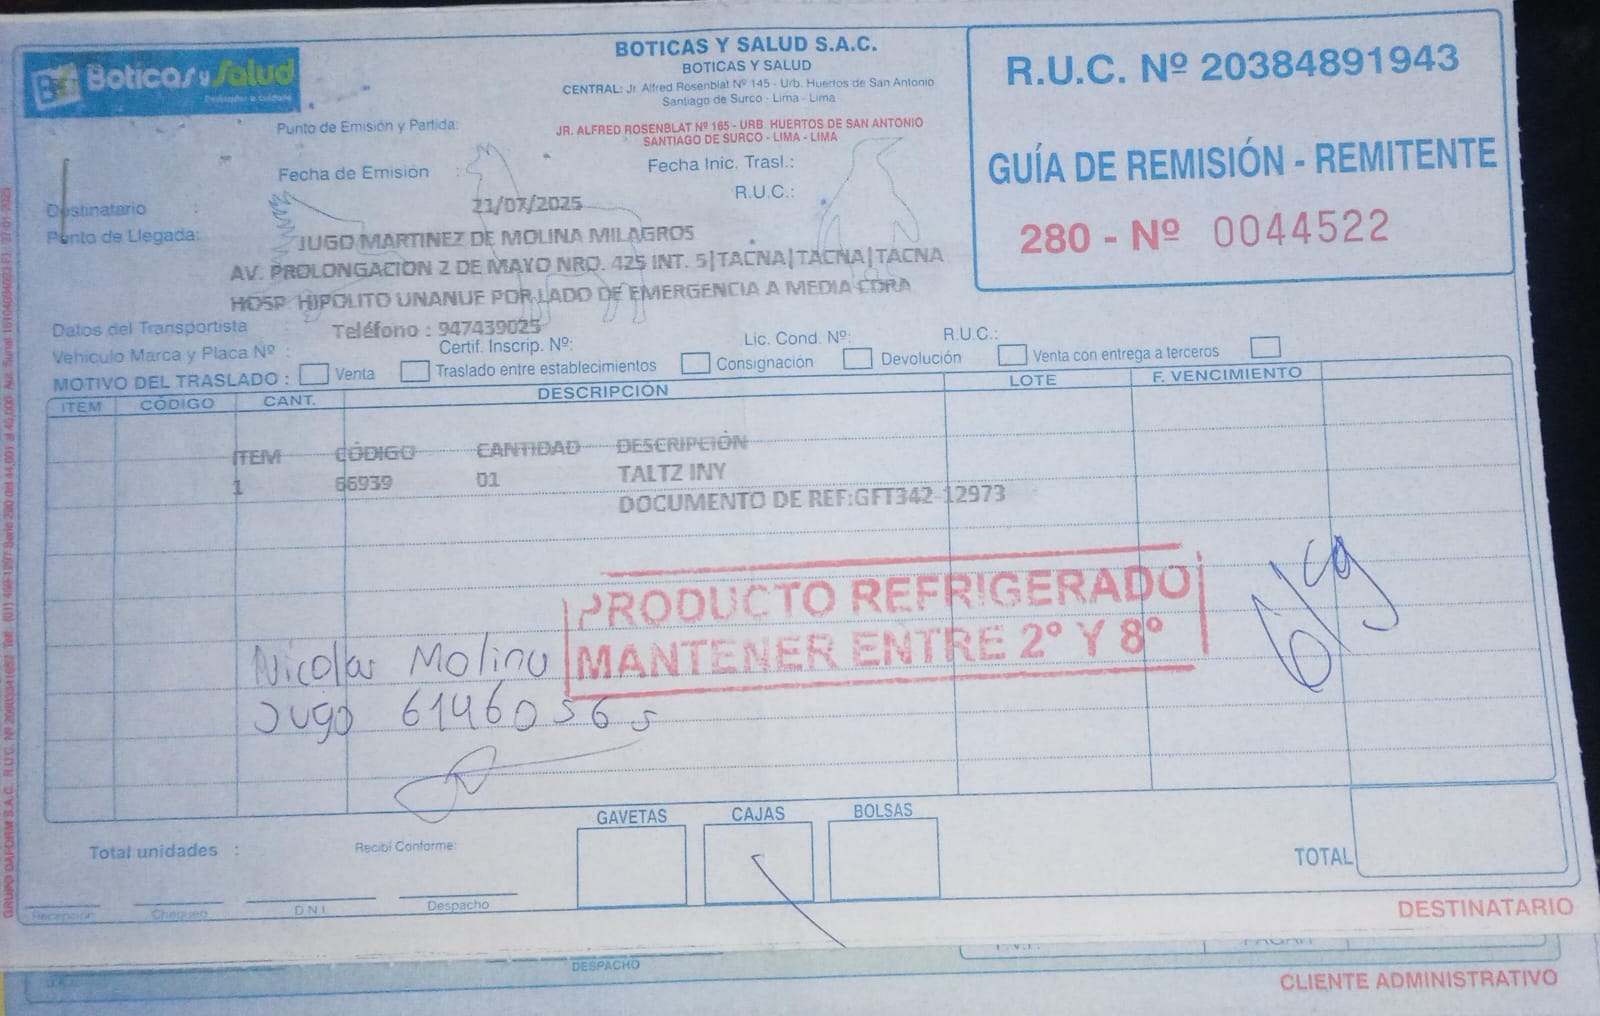 Boticas y Salud
BOTICAS Y SALUD S.A.C.
BOTICAS Y SALUD
CENTRAL: Jr. Alfred Rosenblat Nº 145 - Urb. Huertos de San Antonio
Santiago de Surco - Lima - Lima
R.U.C. Nº 20384891943
GUÍA DE REMISIÓN - REMITENTE
280 - Nº 0044522
Punto de Emisión y Partida:
JR. ALFRED ROSENBLAT Nº 165 - URB. HUERTOS DE SAN ANTONIO
SANTIAGO DE SURCO - LIMA - LIMA
Fecha de Emisión :
Fecha Inic. Trasl.:
21/07/2025
R.U.C.:
Destinatario :
Punto de Llegada:
JUGO MARTINEZ DE MOLINA MILAGROS
AV. PROLONGACION 2 DE MAYO NRO. 425 INT. 5|TACNA|TACNA|TACNA
HOSP HIPOLITO UNANUE POR LADO DE EMERGENCIA A MEDIA CDRA
Datos del Transportista
Teléfono : 947439025
Vehiculo Marca y Placa Nº :
Certif. Inscrip. Nº:
Lic. Cond. Nº:
R.U.C.:
MOTIVO DEL TRASLADO : Venta Traslado entre establecimientos Consignación Devolución Venta con entrega a terceros
ITEM CÓDIGO CANT. DESCRIPCIÓN LOTE F. VENCIMIENTO
ITEM CÓDIGO CANTIDAD DESCRIPCIÓN
1 66939 01 TALTZ INY
DOCUMENTO DE REF:GFT342-12973
PRODUCTO REFRIGERADO
MANTENER ENTRE 2º Y 8º
Nicolas Molina
Jugo 61460565
GAVETAS CAJAS BOLSAS
Total unidades :
Recibí Conforme:
TOTAL
Recepción Chequeo D.N.I. Despacho
DESTINATARIO
DESPACHO
CLIENTE ADMINISTRATIVO